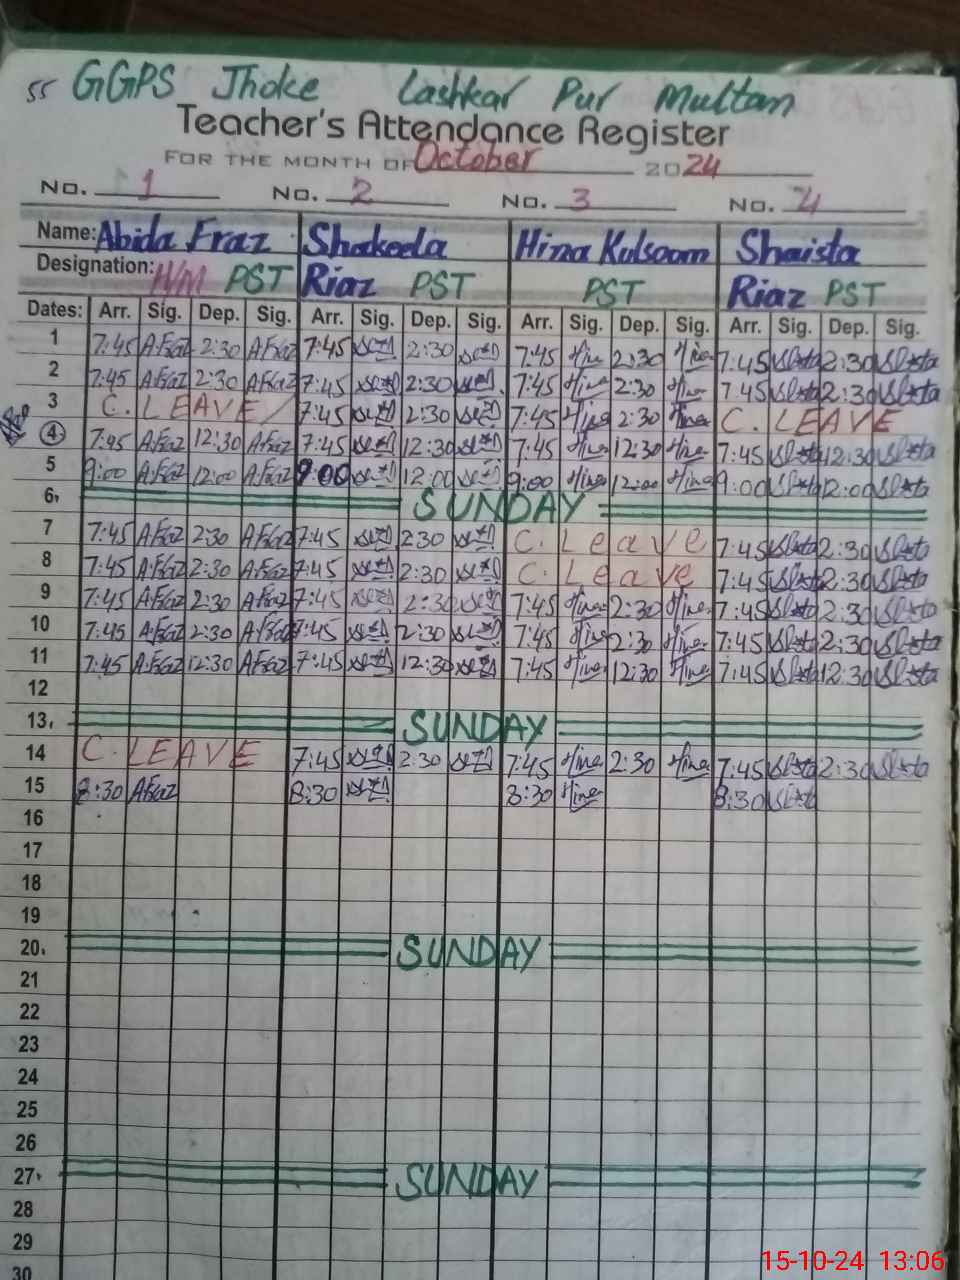 55 GGPS Jhoke Lashkar Pur Multan
Teacher's Attendance Register
FOR THE MONTH OF October 2024
No. 1 No. 2 No. 3 No. 4
Name: Abida Fraz Shakeela Hina Kulsoom Shaista
Designation: H/M PST Riaz PST PST Riaz PST
Dates: Arr. Sig. Dep. Sig. Arr. Sig. Dep. Sig. Arr. Sig. Dep. Sig. Arr. Sig. Dep. Sig.
1 7:45 AFraz 2:30 AFraz 7:45 2:30 7:45 Hina 2:30 Hina 7:45 2:30
2 7:45 AFraz 2:30 AFraz 7:45 2:30 7:45 Hina 2:30 Hina 7:45 2:30
3 C. LEAVE 7:45 2:30 7:45 Hina 2:30 Hina C. LEAVE
4 7:45 AFraz 12:30 AFraz 7:45 12:30 7:45 Hina 12:30 Hina 7:45 12:30
5 9:00 AFraz 12:00 AFraz 9:00 12:00 9:00 Hina 12:00 Hina 9:00 12:00
6 SUNDAY
7 7:45 AFraz 2:30 AFraz 7:45 2:30 C. Leave 7:45 2:30
8 7:45 AFraz 2:30 AFraz 7:45 2:30 C. Leave 7:45 2:30
9 7:45 AFraz 2:30 AFraz 7:45 2:30 7:45 Hina 2:30 Hina 7:45 2:30
10 7:45 AFraz 2:30 AFraz 7:45 2:30 7:45 Hina 2:30 Hina 7:45 2:30
11 7:45 AFraz 12:30 AFraz 7:45 12:30 7:45 Hina 12:30 Hina 7:45 12:30
12
13 SUNDAY
14 C. LEAVE 7:45 2:30 7:45 Hina 2:30 Hina 7:45 2:30
15 8:30 AFraz 8:30 8:30 Hina 8:30
16
17
18
19
20 SUNDAY
21
22
23
24
25
26
27 SUNDAY
28
29
30
15-10-24 13:06